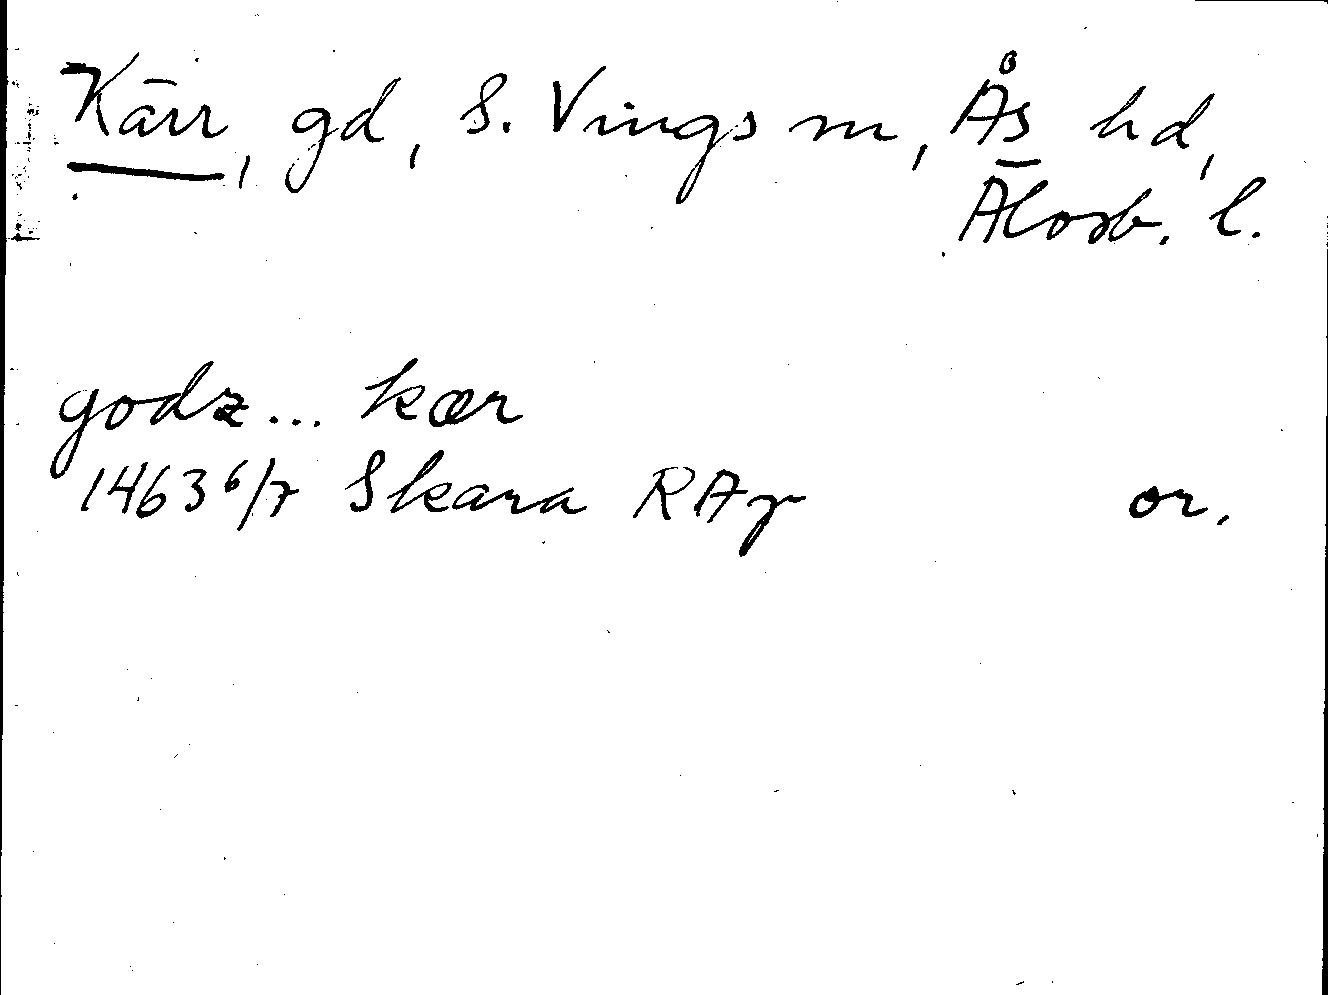 Kärr, gd, S. Vings sn, Ås hd,
Älvsb. l.
godz... kær
1463 6/7 Skara RAp or.